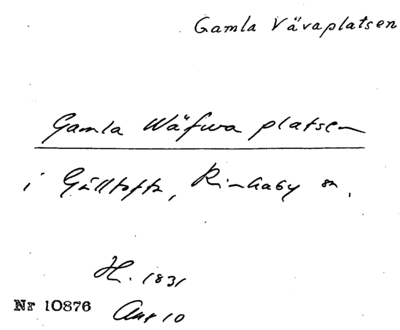 Gamla Vävaplatsen
Gamla Wäfwa platsen
i Gälltofta, Rinkaby sn.
H. 1831
Nr 10876
Akt 10